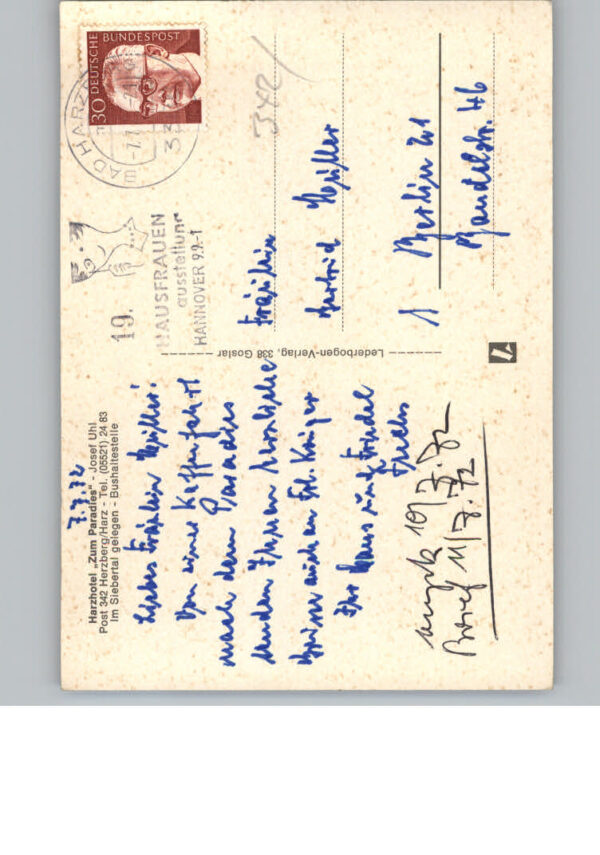 Harzhotel „Zum Paradies" - Josef Uhl
Post 342 Herzberg/Harz - Tel. (05521) 24 83
Im Siebertal gelegen - Bushaltestelle
7.7.72
Liebes Fräulein Müller!
Von einer Kaffeefahrt
nach dem Paradies
senden Ihnen herzliche
Grüsse auch an Frl. Krüger
Ihr Hans und Friedel
10/7.72
Brief 11/7.72
Lederbogen-Verlag, 338 Goslar
19.
HAUSFRAUEN
ausstellung
HANNOVER 9.9.-1
BAD HARZ
-7.7
DEUTSCHE BUNDESPOST
30
342/
Fräulein
Müller
1 Berlin 21
Bandelstr. 46